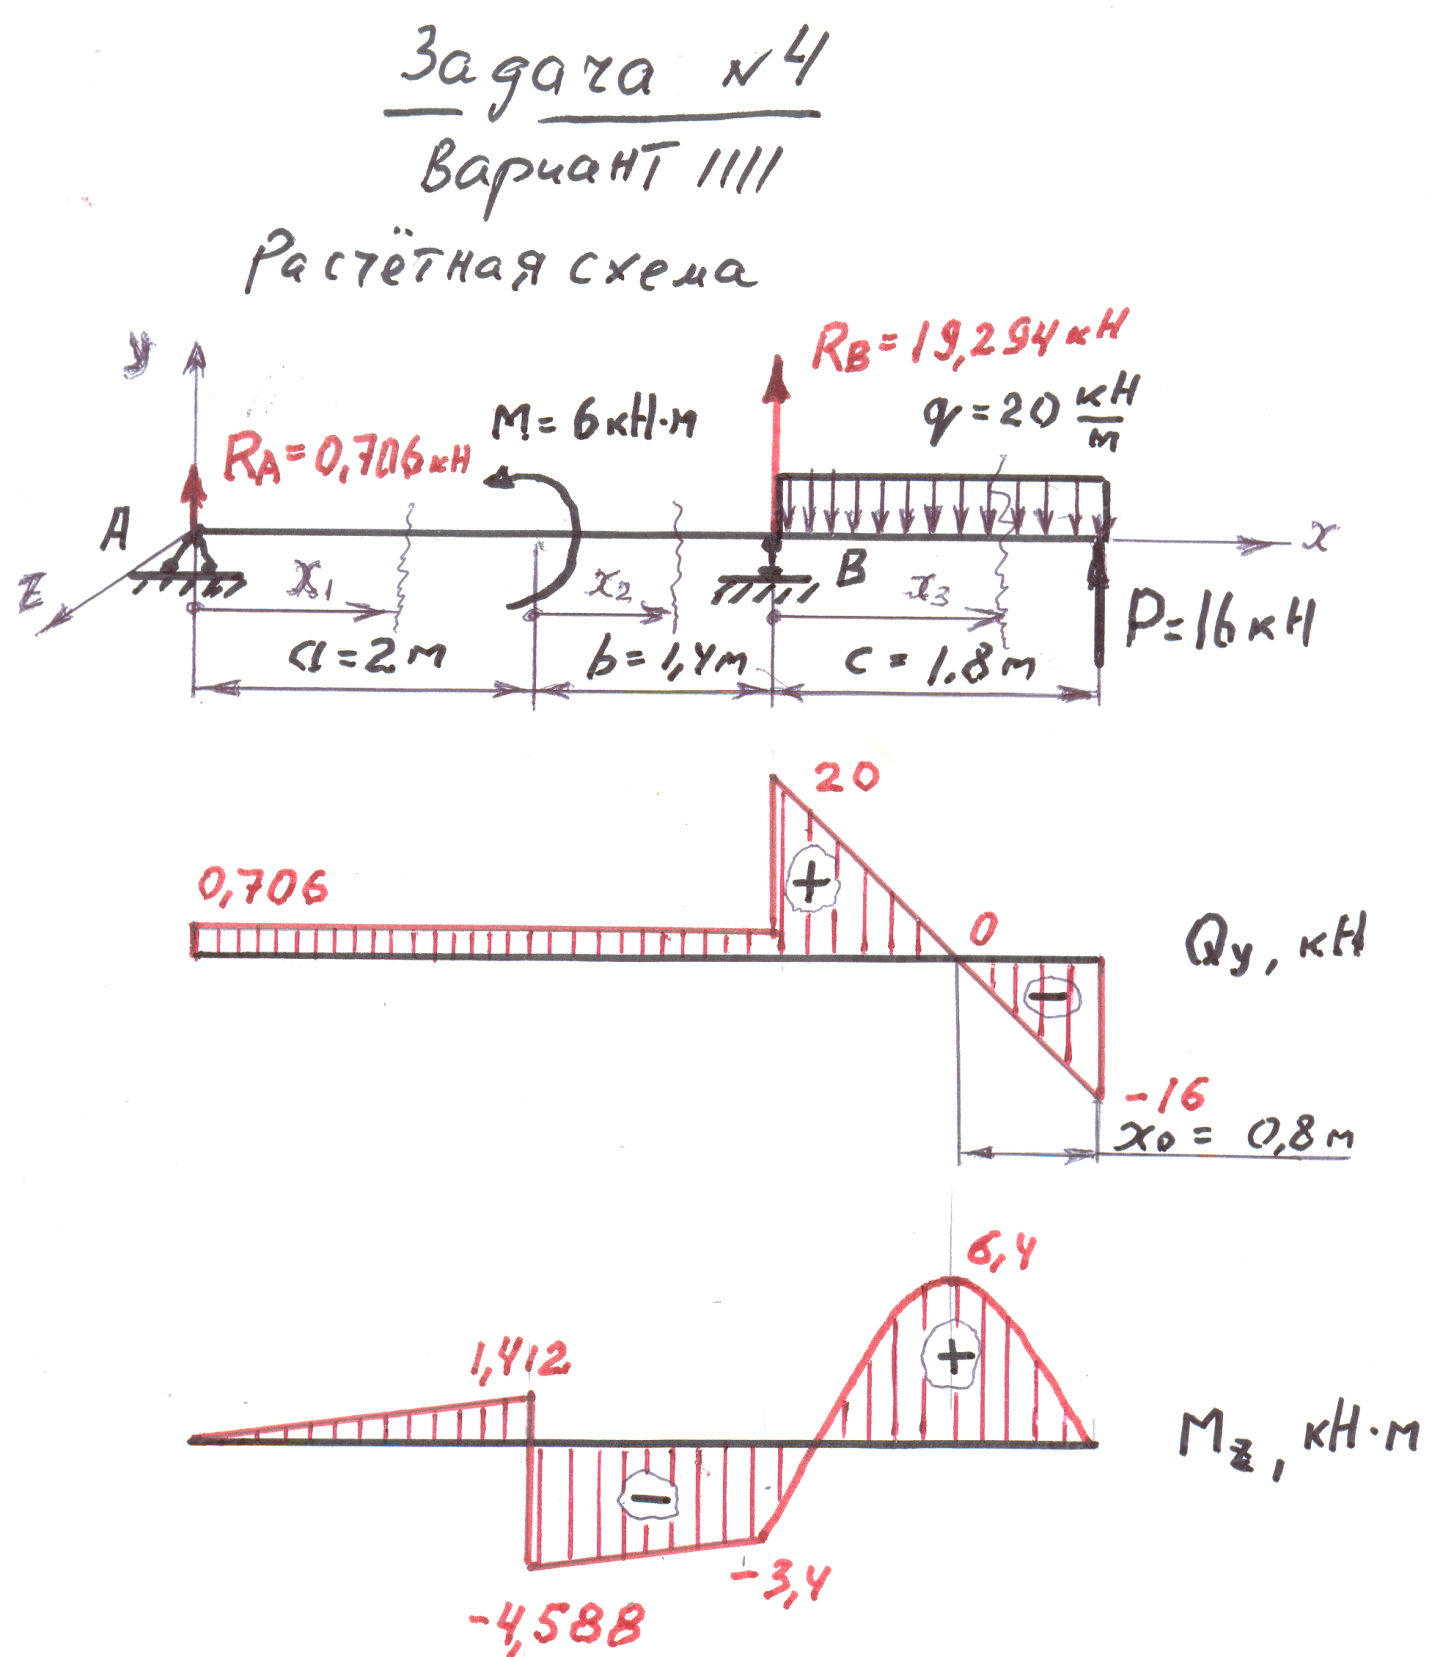 Задача №4
Вариант 1111
Расчётная схема
y
RB=19,294кН
q=20 кН/м
M=6кН·м
RA=0,706кН
A
B
x
z
x1
x2
x3
P=16кН
a=2м
b=1,4м
c=1.8м
20
0,706
+
0
Qy, кН
−
-16
x0= 0,8м
6,4
1,412
+
Mz, кН·м
−
-3,4
-4,588